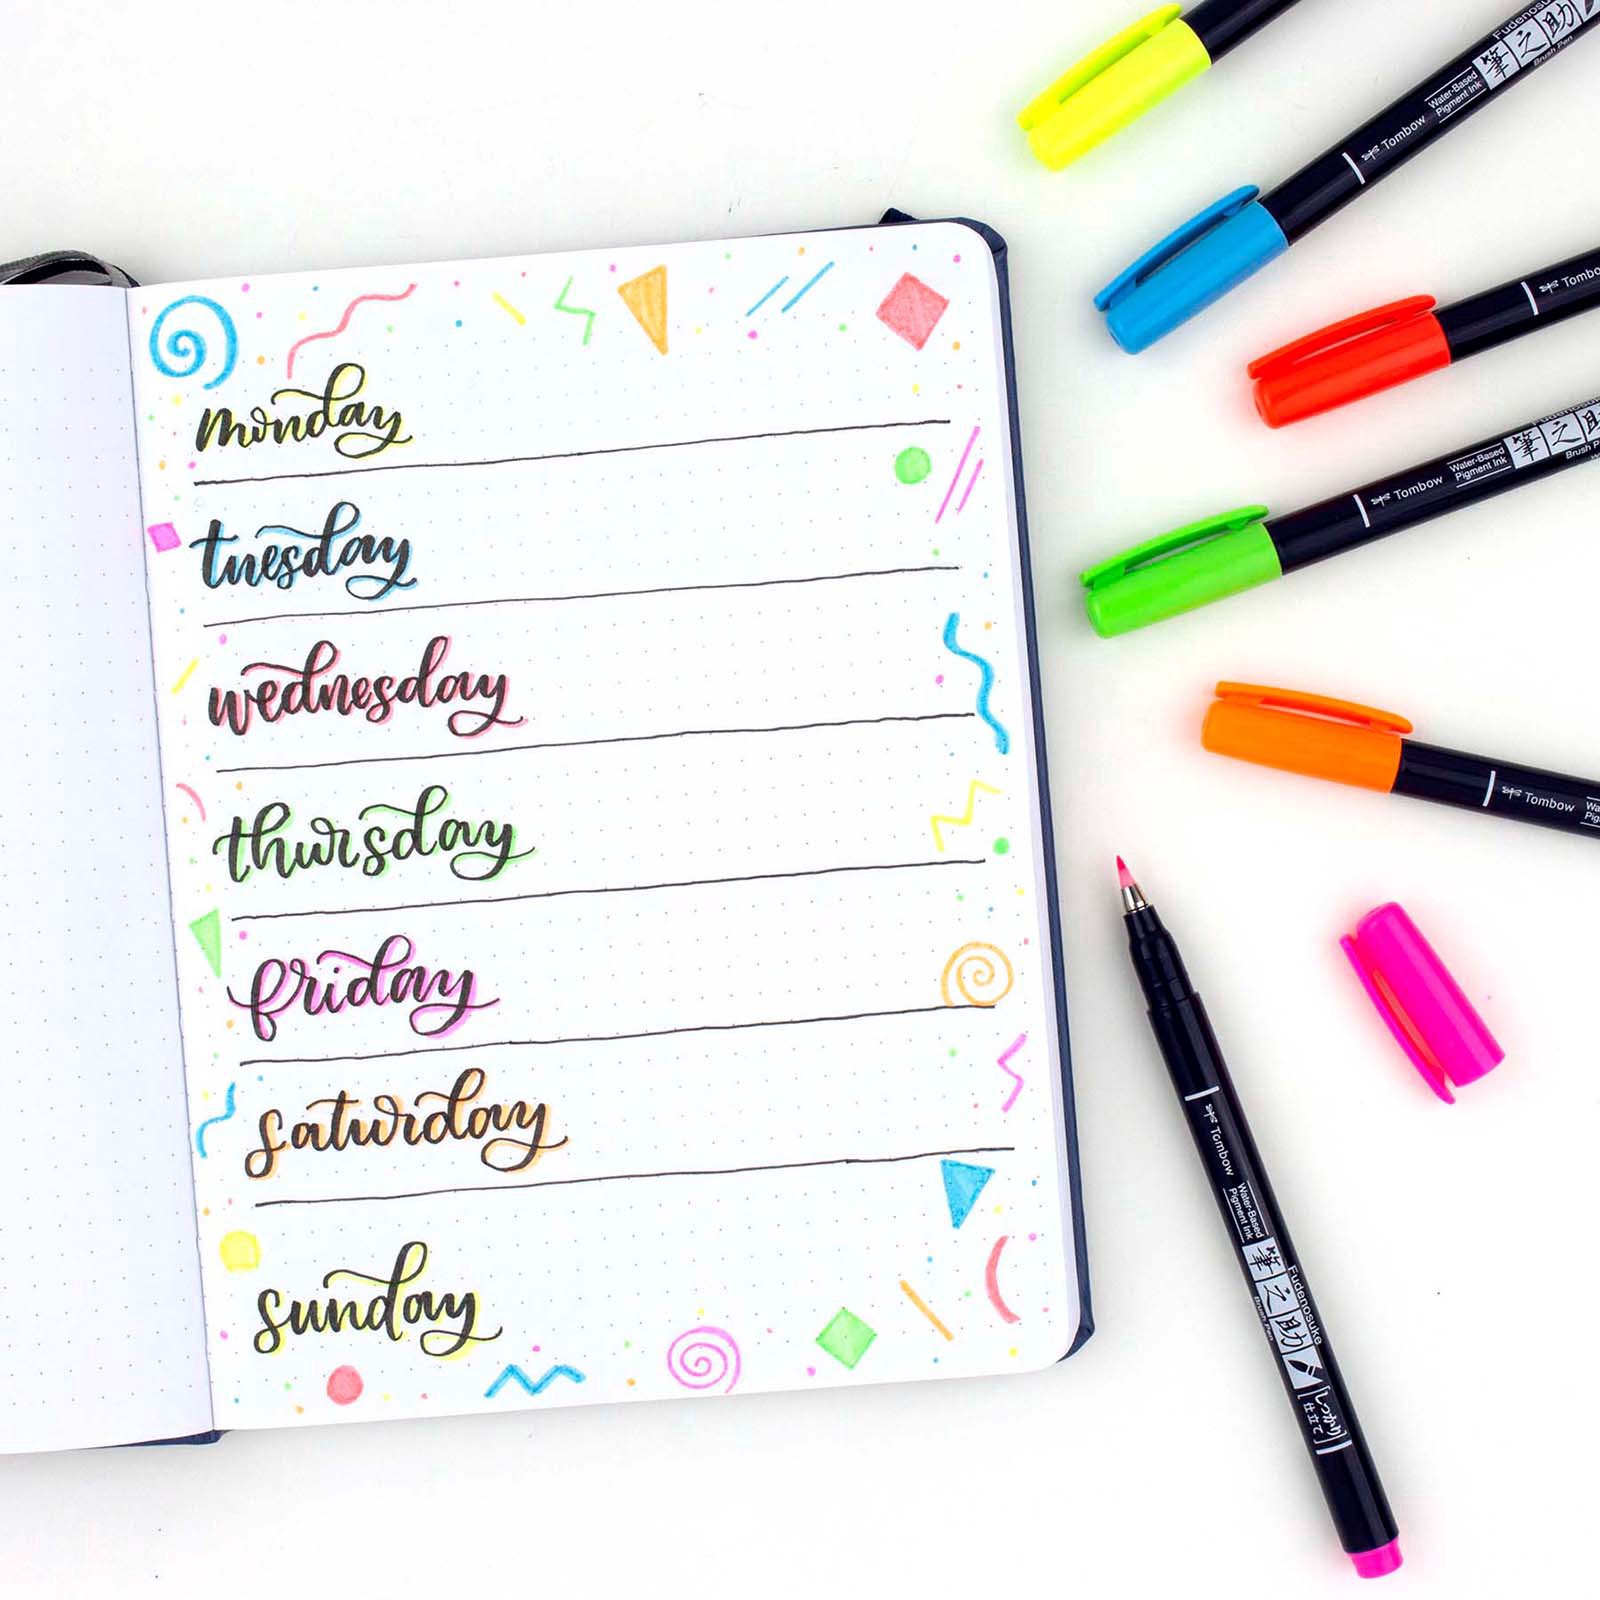 monday
tuesday
wednesday
thursday
friday
saturday
sunday
Tombow
Water-Based
Pigment Ink
筆之助
Brush Pen
Tombow
Water-Based
Pigment Ink
筆之
Brush Pen
Tombow
Tombow
Water-Based
Pigment Ink
筆之助
Fudenosuke
Brush Pen
しっかり
仕立て